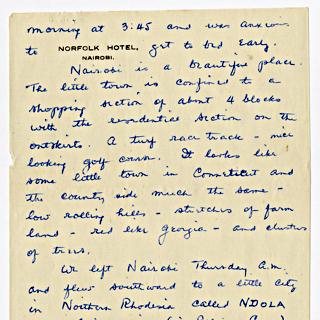 morning at 3:45 and was anxious
to NORFOLK HOTEL, get to bed early.
NAIROBI.
Nairobi is a beautiful place.
The little town is confined to a
shopping section of about 4 blocks
with the residential section on the
outskirts. A turf race track - nice
looking golf course. It looks like
some little town in Connecticut and
the country side much the same -
low rolling hills - stretches of farm
land - red like Georgia - and clusters
of trees.
We left Nairobi Thursday A.M.
and flew southward to a little city
in Northern Rhodesia called NDOLA